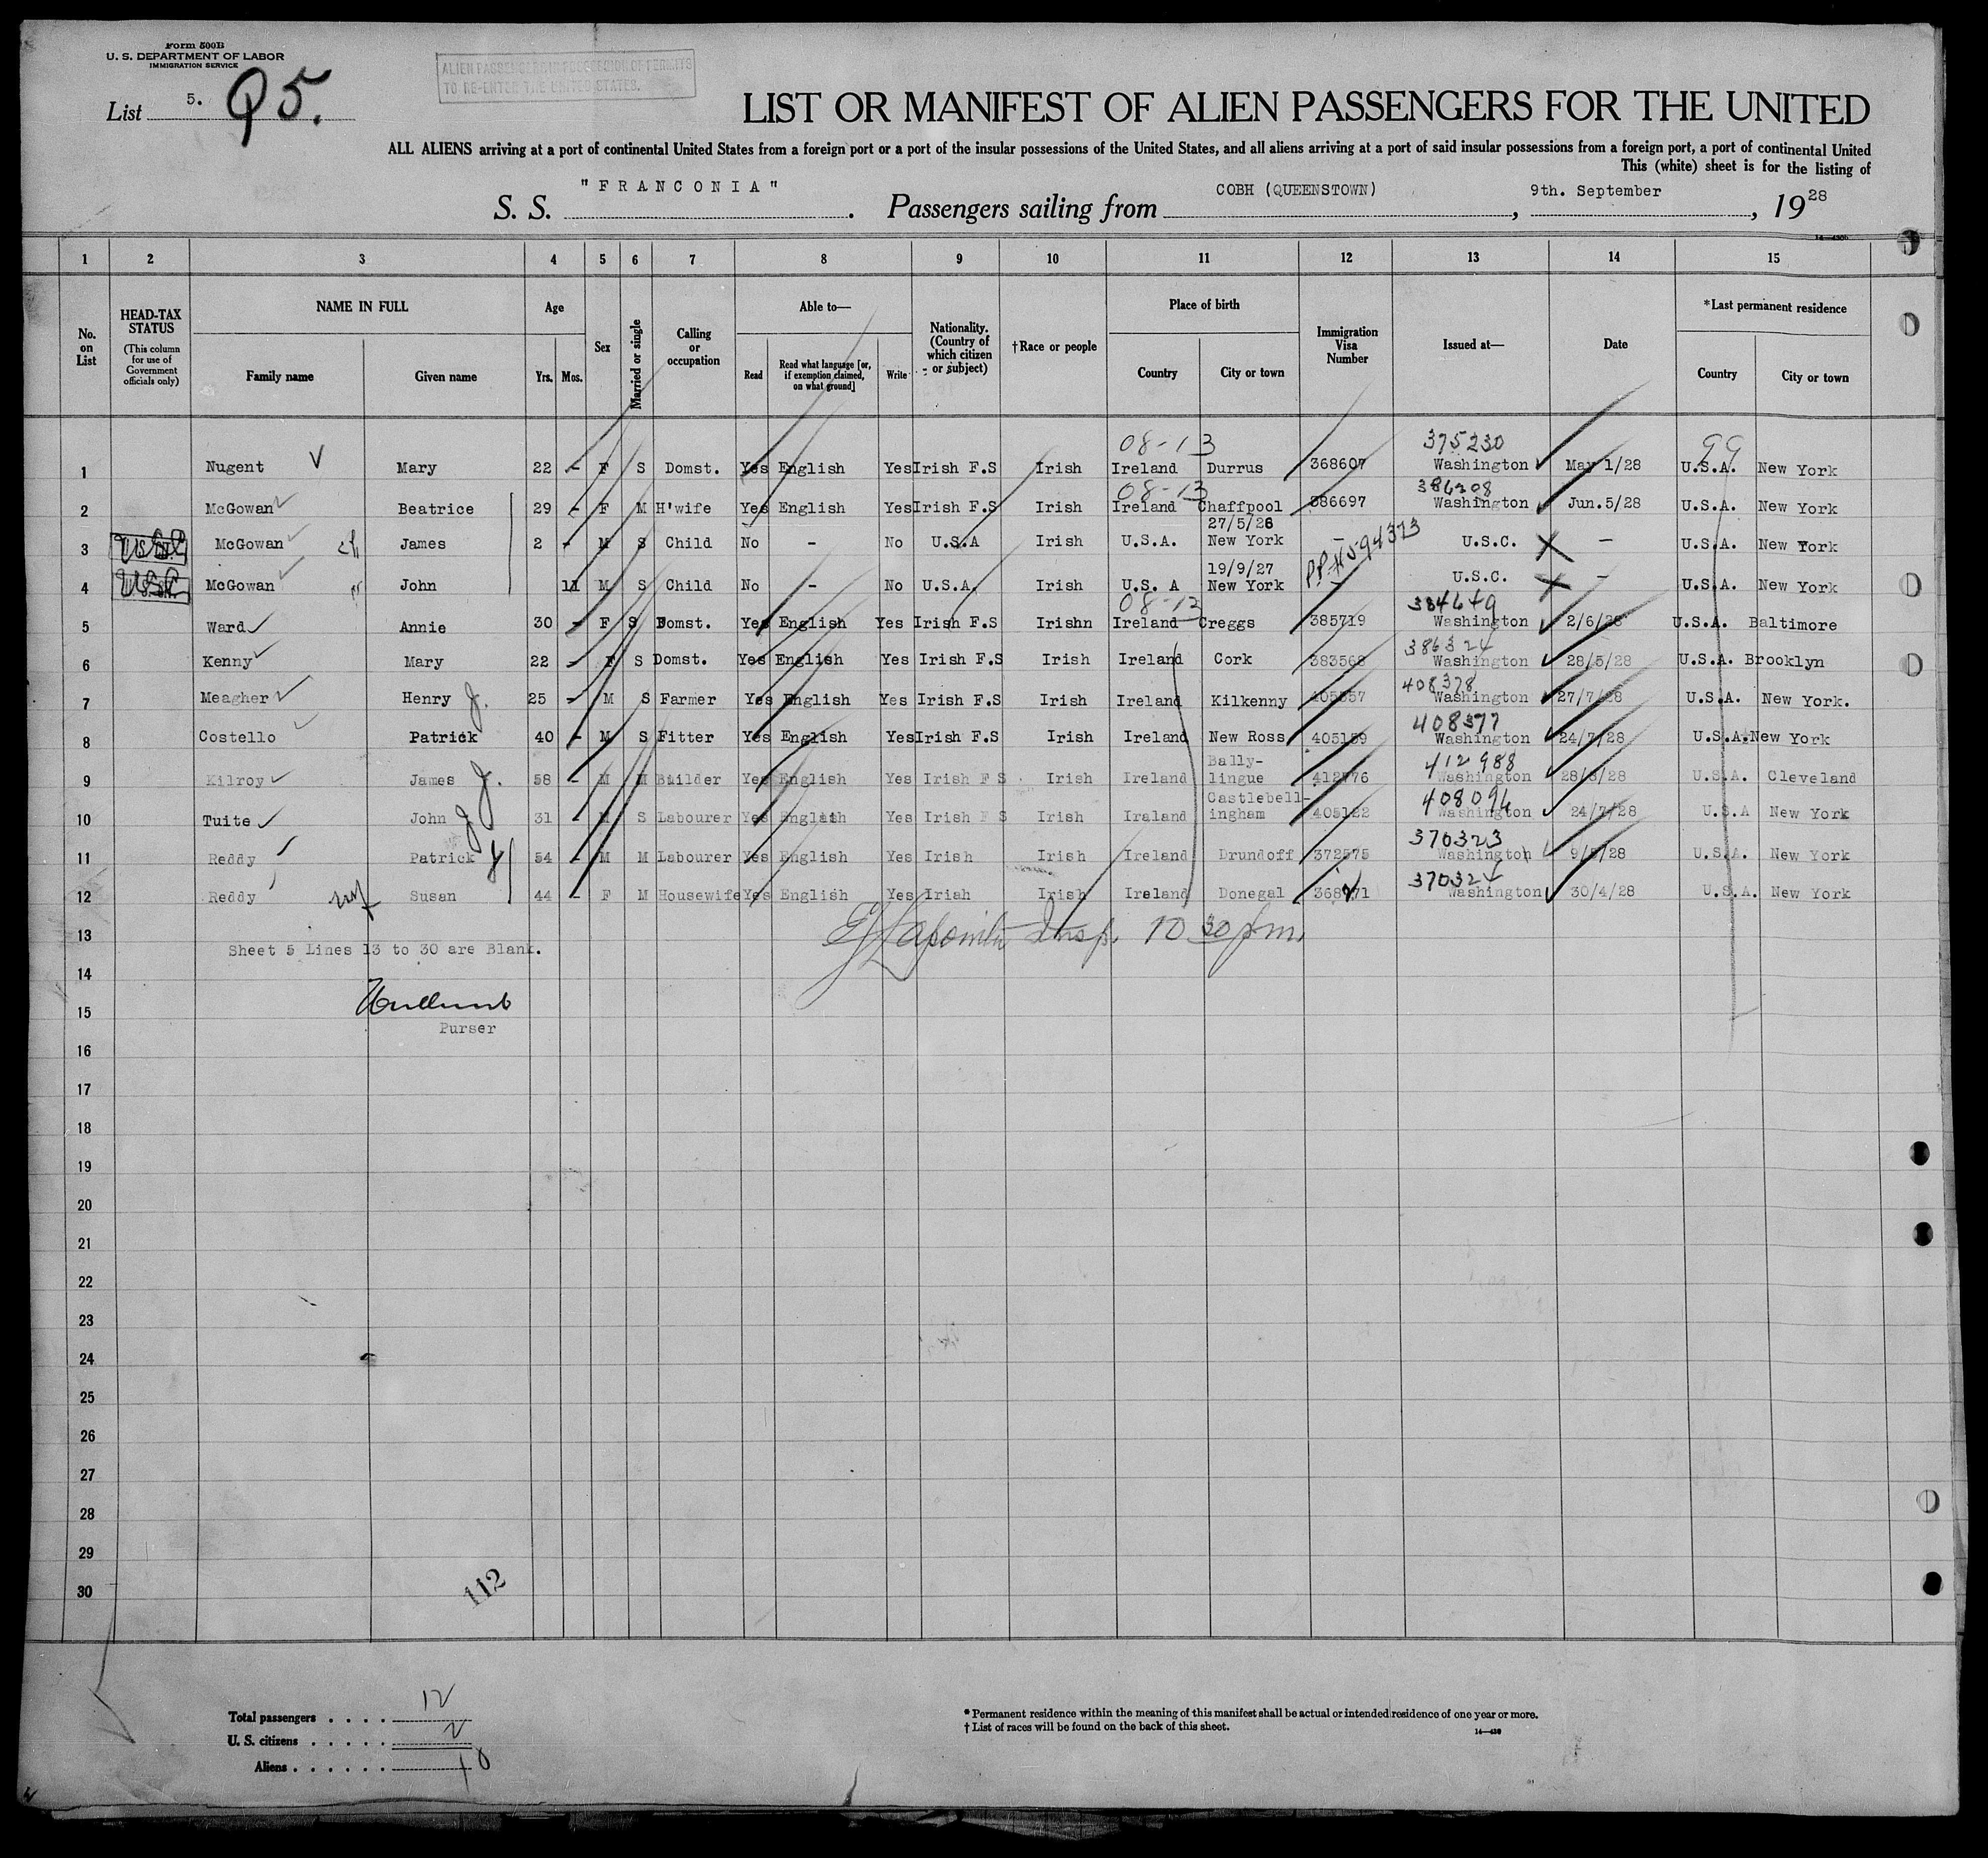 Form 500B
U. S. DEPARTMENT OF LABOR
IMMIGRATION SERVICE
ALIEN PASSENGERS IN POSSESSION OF PERMITS
TO RE-ENTER THE UNITED STATES.
List 5. Q5.
LIST OR MANIFEST OF ALIEN PASSENGERS FOR THE UNITED
ALL ALIENS arriving at a port of continental United States from a foreign port or a port of the insular possessions of the United States, and all aliens arriving at a port of said insular possessions from a foreign port, a port of continental United
This (white) sheet is for the listing of
S. S. "FRANCONIA". Passengers sailing from COBH (QUEENSTOWN), 9th. September, 1928
1 2 3 4 5 6 7 8 9 10 11 12 13 14 15
No. on List
HEAD-TAX STATUS (This column for use of Government officials only)
NAME IN FULL Family name Given name
Age Yrs. Mos.
Sex
Married or single
Calling or occupation
Able to— Read Read what language [or, if exemption claimed, on what ground] Write
Nationality. (Country of which citizen or subject)
†Race or people
Place of birth Country City or town
Immigration Visa Number
Issued at—
Date
*Last permanent residence Country City or town
08-13 375230 99
1 Nugent Mary 22 - F S Domst. Yes English Yes Irish F.S Irish Ireland Durrus 368607 Washington May 1/28 U.S.A. New York
08-13 386208
2 McGowan Beatrice 29 - F M H'wife Yes English Yes Irish F.S Irish Ireland Chaffpool 386697 Washington Jun.5/28 U.S.A. New York
27/5/26
3 McGowan James 2 - M S Child No - No U.S.A Irish U.S.A. New York - U.S.C. - U.S.A. New York
19/9/27 PP#594373
4 McGowan John 11 M S Child No - No U.S.A. Irish U.S. A New York U.S.C. - U.S.A. New York
08-13 384649
5 Ward Annie 30 - F S Domst. Yes English Yes Irish F.S Irishn Ireland Creggs 385719 Washington 2/6/28 U.S.A. Baltimore
386324
6 Kenny Mary 22 - F S Domst. Yes English Yes Irish F.S Irish Ireland Cork 383568 Washington 28/5/28 U.S.A. Brooklyn
408378
7 Meagher Henry J. 25 - M S Farmer Yes English Yes Irish F.S Irish Ireland Kilkenny 405557 Washington 27/7/28 U.S.A. New York.
408377
8 Costello Patrick 40 - M S Fitter Yes English Yes Irish F.S Irish Ireland New Ross 405159 Washington 24/7/28 U.S.A. New York
412988
9 Kilroy James J. 58 - M M Builder Yes English Yes Irish F S Irish Ireland Bally-
lingue Washington U.S.A. Cleveland
408094
10 Tuite John J 31 - M S Labourer Yes English Yes Irish F S Irish Iraland Castlebell-
ingham 405122 Washington 24/7/28 U.S.A New York
370323
11 Reddy Patrick 54 - M M Labourer Yes English Yes Irish Irish Ireland Drundoff 372575 Washington 9/5/28 U.S.A. New York
370324
12 Reddy Susan 44 - F M Housewife Yes English Yes Irish Irish Ireland Donegal Washington 30/4/28 U.S.A. New York
13
Insp. 10 30 pm.
Sheet 5 Lines 13 to 30 are Blank.
14
15
Purser
16
17
18
19
20
21
22
23
24
25
26
27
28
29
30
112
Total passengers . . . . 12
U. S. citizens . . . . . 2
Aliens . . . . . . 10
* Permanent residence within the meaning of this manifest shall be actual or intended residence of one year or more.
† List of races will be found on the back of this sheet.
14—430